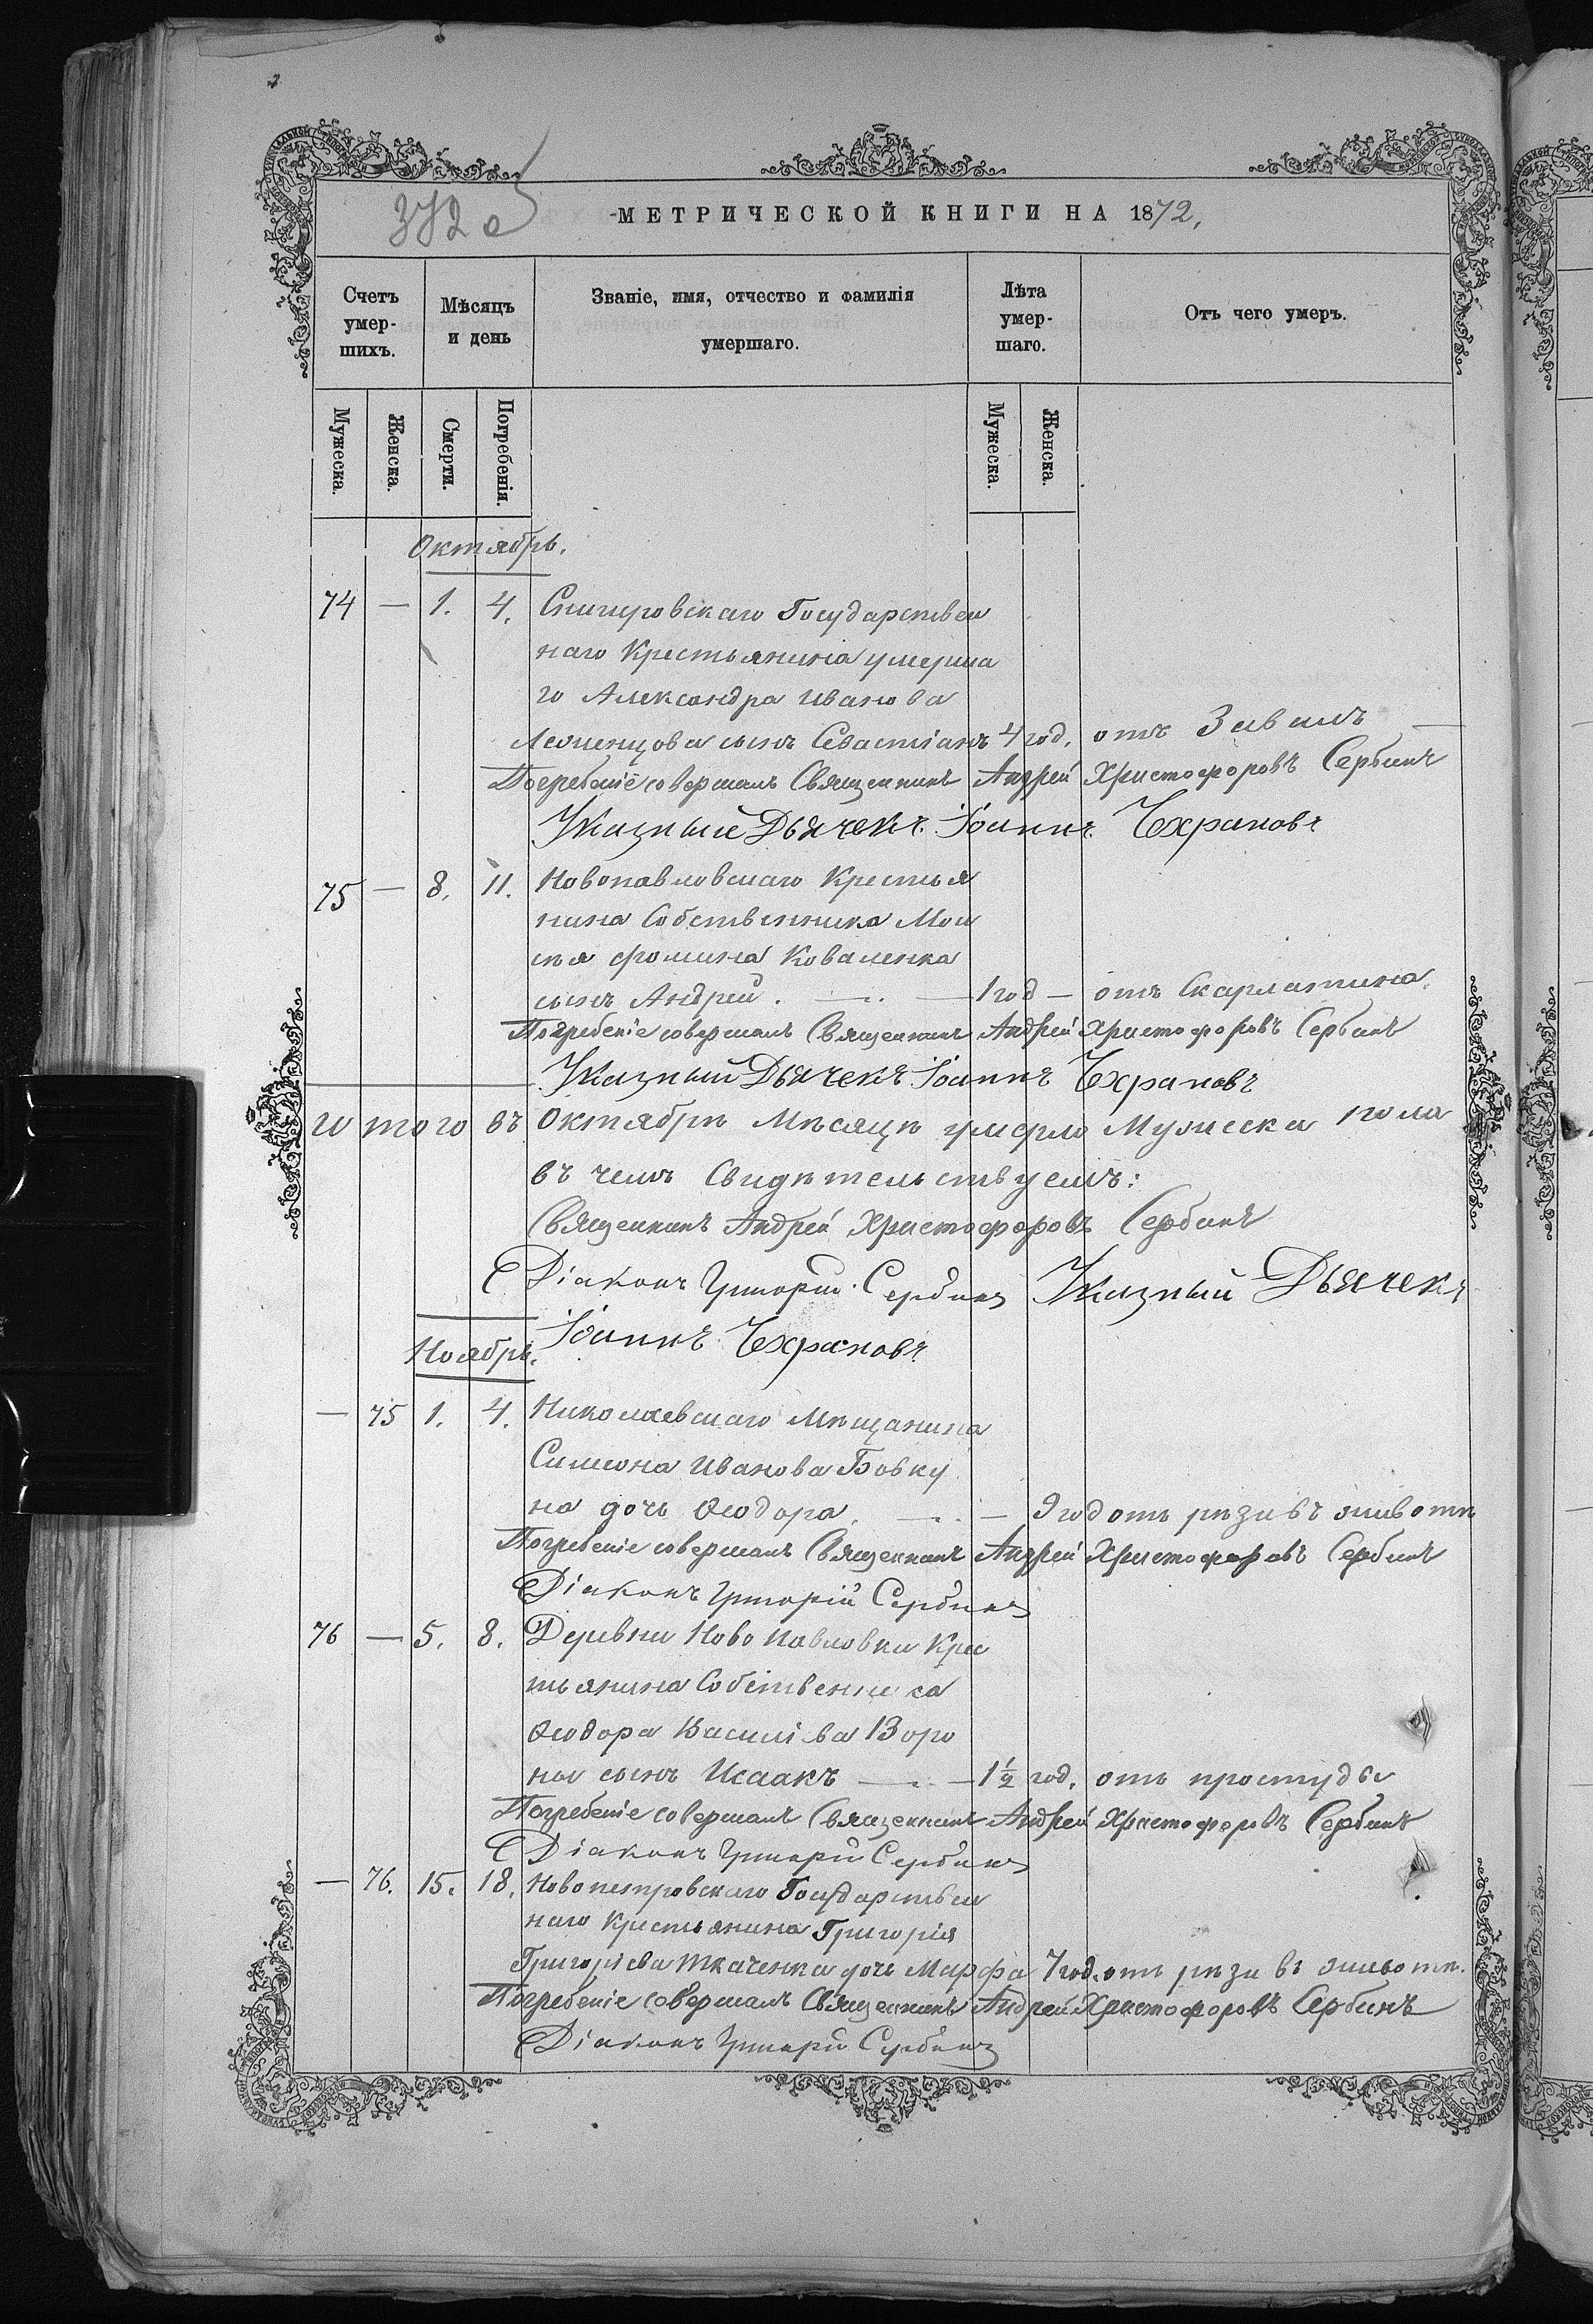 372 о
МЕТРИЧЕСКОЙ КНИГИ НА 1872,
Счетъ умер-шихъ.
Мѣсяцъ и день
Званіе, имя, отчество и фамилія умершаго.
Лѣта умер-шаго.
Отъ чего умеръ.
Мужеска. Женска. Смерти. Погребенія. Мужеска. Женска.
Октябрь.
74 — 1. 4. Снигуровскаго Государствен
наго Крестьянина умерша
го Александра Иванова
сынъ Севастіанъ 4 год. отъ
Погребеніе совершалъ Священникъ Андрей Христофоровъ Сербинъ
Указный Дьячекъ Іоаннъ
75 — 8. 11. Новопавловскаго Крестья
нина Собственника Мои
сея Фомина Коваленка
сынъ Андрей. — 1 год — отъ Скарлатина.
Погребеніе совершалъ Священникъ Андрей Христофоровъ Сербинъ
Указный Дьячекъ Іоаннъ
И того въ Октябрѣ Мѣсяцѣ умерло Мужеска пола
въ чемъ Свидѣтельствуемъ:
Священникъ Андрей Христофоровъ Сербинъ
Діаконъ Григорій Сербинъ Указный Дьячекъ
Іоаннъ
Ноябрь.
— 75 1. 4. Николаевскаго Мѣщанина
Симеона Иванова Бовку
на дочь Ѳеодора. — 9 год отъ рѣзи въ животѣ
Погребеніе совершалъ Священникъ Андрей Христофоровъ Сербинъ
Діаконъ Григорій Сербинъ
76 — 5. 8. Деревни Ново Павловки Крес
тьянина Собственника
Ѳеодора Василіева Воро
ны сынъ Исаакъ — 1½ год. отъ простуды
Погребеніе совершалъ Священникъ Андрей Христофоровъ Сербинъ
Діаконъ Григорій Сербинъ
— 76. 15. 18. Новопетровскаго Государствен
наго Крестьянина Григорія
Григоріева Ткаченка дочь Марфа 7 год. отъ рѣзи въ животѣ.
Погребеніе совершалъ Священникъ Андрей Христофоровъ Сербинъ
Діаконъ Григорій Сербинъ